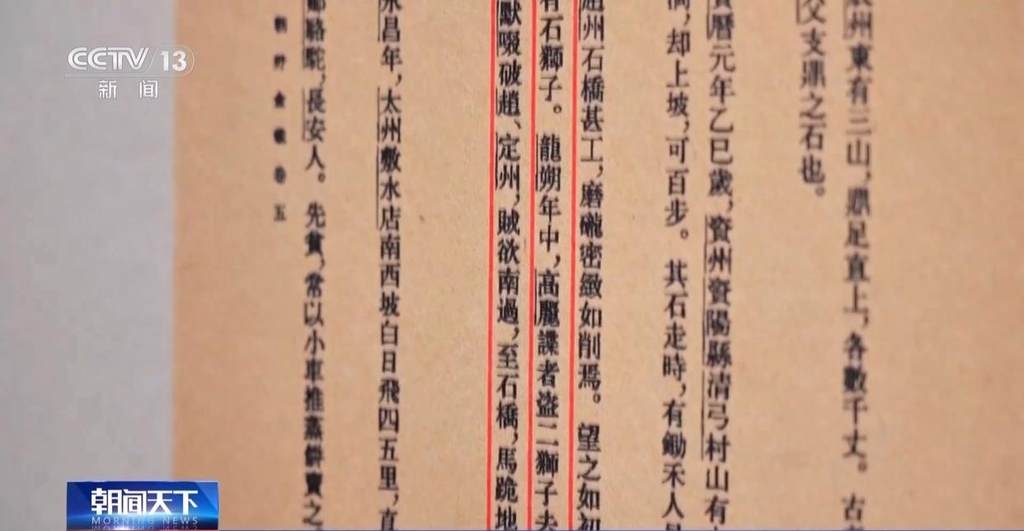 CCTV 13
新闻
州東有三山，鼎足直上，各數千丈。古
父支鼎之石也。
寶曆元年乙巳歲，資州資陽縣清弓村山有
湧，却上坡，可百步。其石走時，有鋤禾人
趙州石橋甚工，磨礲密緻如削焉。望之如初
有石獅子。龍朔年中，高麗諜者盜二獅子去
默啜破趙、定州，賊欲南過，至石橋，馬跪地
永昌年，太州敷水店南西坡白日飛四五里，直
鄒駱駝，長安人。先貧，常以小車推蒸餅賣之
朝野僉載卷五
朝闻天下
MORNING NEWS